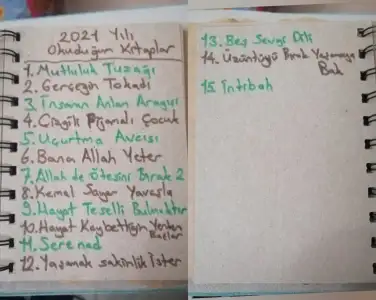 2021 Yılı
Okuduğum Kitaplar
1. Mutluluk Tuzağı
2. Gerçeğin Tokadı
3. İnsanın Anlam Arayışı
4. Çizgili Pijamalı Çocuk
5. Uçurtma Avcısı
6. Bana Allah Yeter
7. Allah de Ötesini Bırak 2
8. Kemal Sayar Yavaşla
9. Hayat Teselli Bulmaktır
10. Hayat Kaybettiğin Yerden
Başlar
11. Serenad
12. Yaşamak sakinlik ister
13. Beş Sevgi Dili
14. Üzüntüyü Bırak Yaşamaya
Bak
15. İntibah